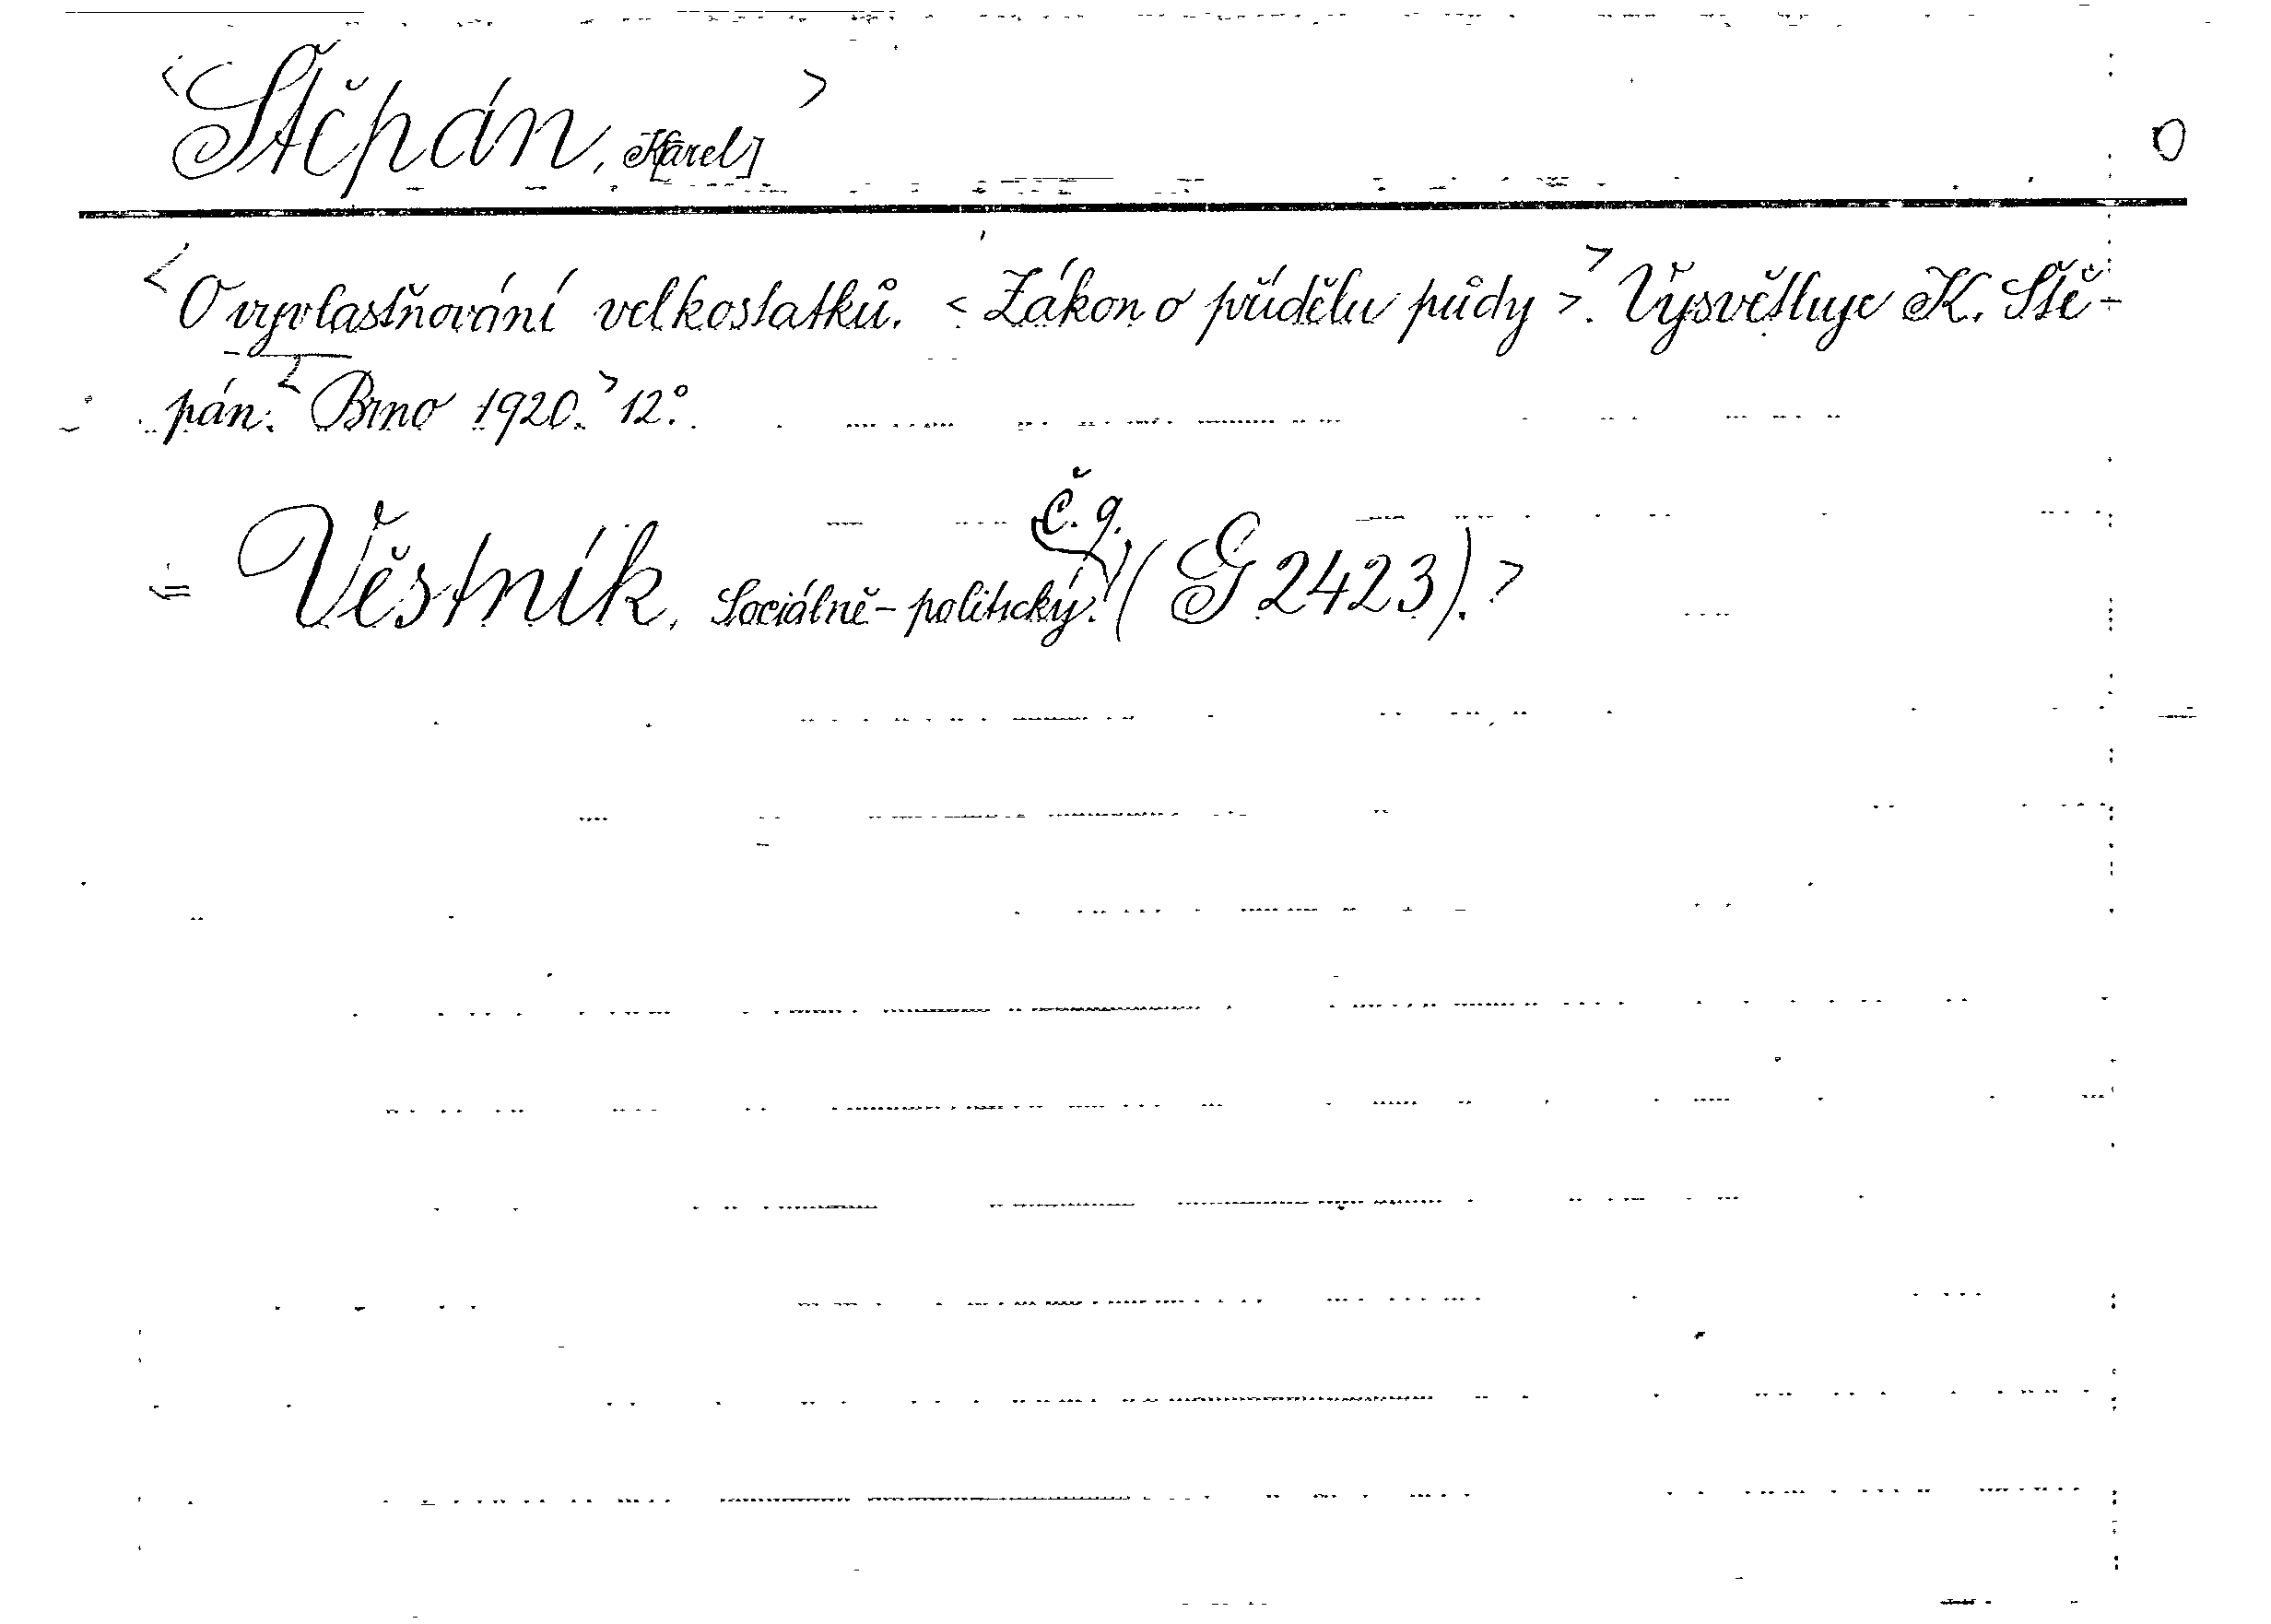 <Štěpán, K[arel]> 0
<O vyvlastňování velkostatků. <Zákon o přídělu půdy>.> Vysvětluje K. Ště-
pán. <Brno 1920.> 12°.
č. 9.
<= Věstník, Sociálně-politický. (G 2423).>